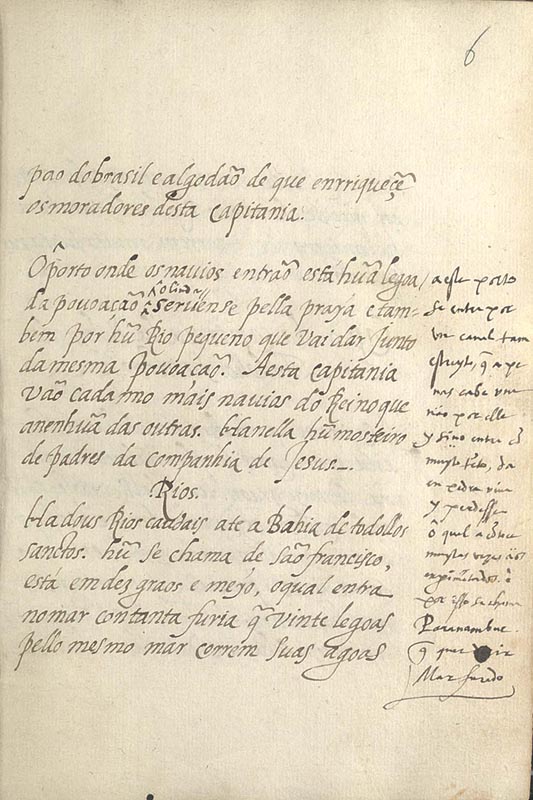 6
pao dobrasil e algodaõ de que enrriqueçẽ
os moradores desta Capitania.
O porto onde os nauios entraõ està hũa legoa
da pouoacaõ Olinda seruense pella praya e tam-
bem por hũ Rio pequeno que Vai dar junto
da mesma Pouoacaõ. A esta capitania
Vaõ cada año mais nauias do Reino que
a nenhũa das outras. Ha nella hũ mosteiro
de padres da Companhia de Jesus.
Rios.
Ha dous Rios caudais ate a Bahia de todollos
sanctos. hũ se chama de saõ francisco,
està em dez graos e meyo, o qual entra
no mar con tanta furia q̃ Vinte legoas
pello mesmo mar correm suas agoas
a este porto
se entra por
un canal tam
estreyto, q̃ a pe
nas cabe una
nao por elle
y sino entra
muyto
en pedra viua
y perdesse
o qual
muytas vezes
por isso se chama
Paranambuc
q̃ quer dizir
Mar furado